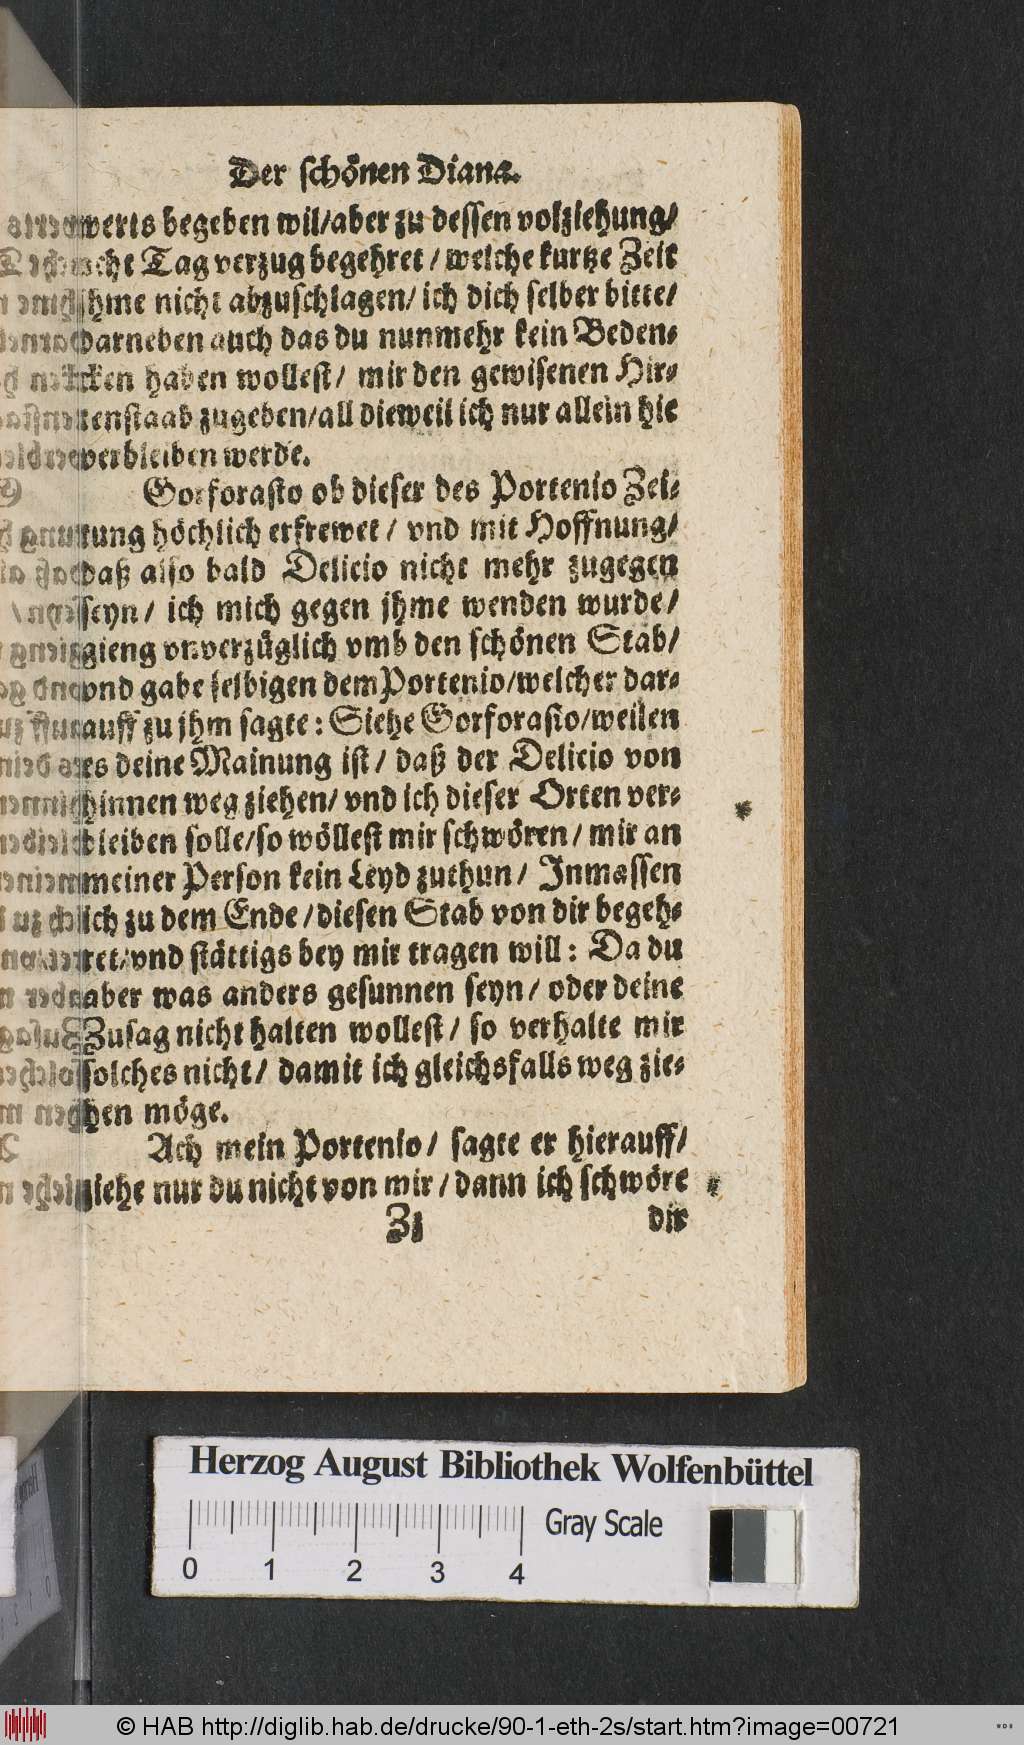 Der schönen Diana.
werts begeben wil/aber zu dessen volziehung/
acht Tag verzug begehret / welche kurtze Zeit
jhme nicht abzuschlagen/ ich dich selber bitte/
darneben auch das du nunmehr kein Beden-
cken haben wollest/ mir den gewisenen Hir-
tenstaab zugeben/all dieweil ich nur allein hie
verbleiben werde.
Gorforasto ob dieser des Portenio Zei-
tung höchlich erfrewet / vnd mit Hoffnung/
daß also bald Delicio nicht mehr zugegen
seyn/ ich mich gegen jhme wenden wurde/
gieng vnverzüglich vmb den schönen Stab/
vnd gabe selbigen dem Portenio/welcher dar-
auff zu jhm sagte: Siehe Gorforasto/weilen
es deine Mainung ist/ daß der Delicio von
hinnen weg ziehen/ vnd ich dieser Orten ver-
bleiben solle/so wöllest mir schwören/ mir an
meiner Person kein Leyd zuthun/ Inmassen
ich zu dem Ende/diesen Stab von dir begeh-
ret/vnd stättigs bey mir tragen will: Da du
aber was anders gesunnen seyn/ oder deine
Zusag nicht halten wollest/ so verhalte mir
solches nicht/ damit ich gleichsfalls weg zie-
hen möge.
Ach mein Portenio/ sagte er hierauff/
ziehe nur du nicht von mir/dann ich schwöre
Zz dir
Herzog August Bibliothek Wolfenbüttel
Gray Scale
0 1 2 3 4
© HAB http://diglib.hab.de/drucke/90-1-eth-2s/start.htm?image=00721